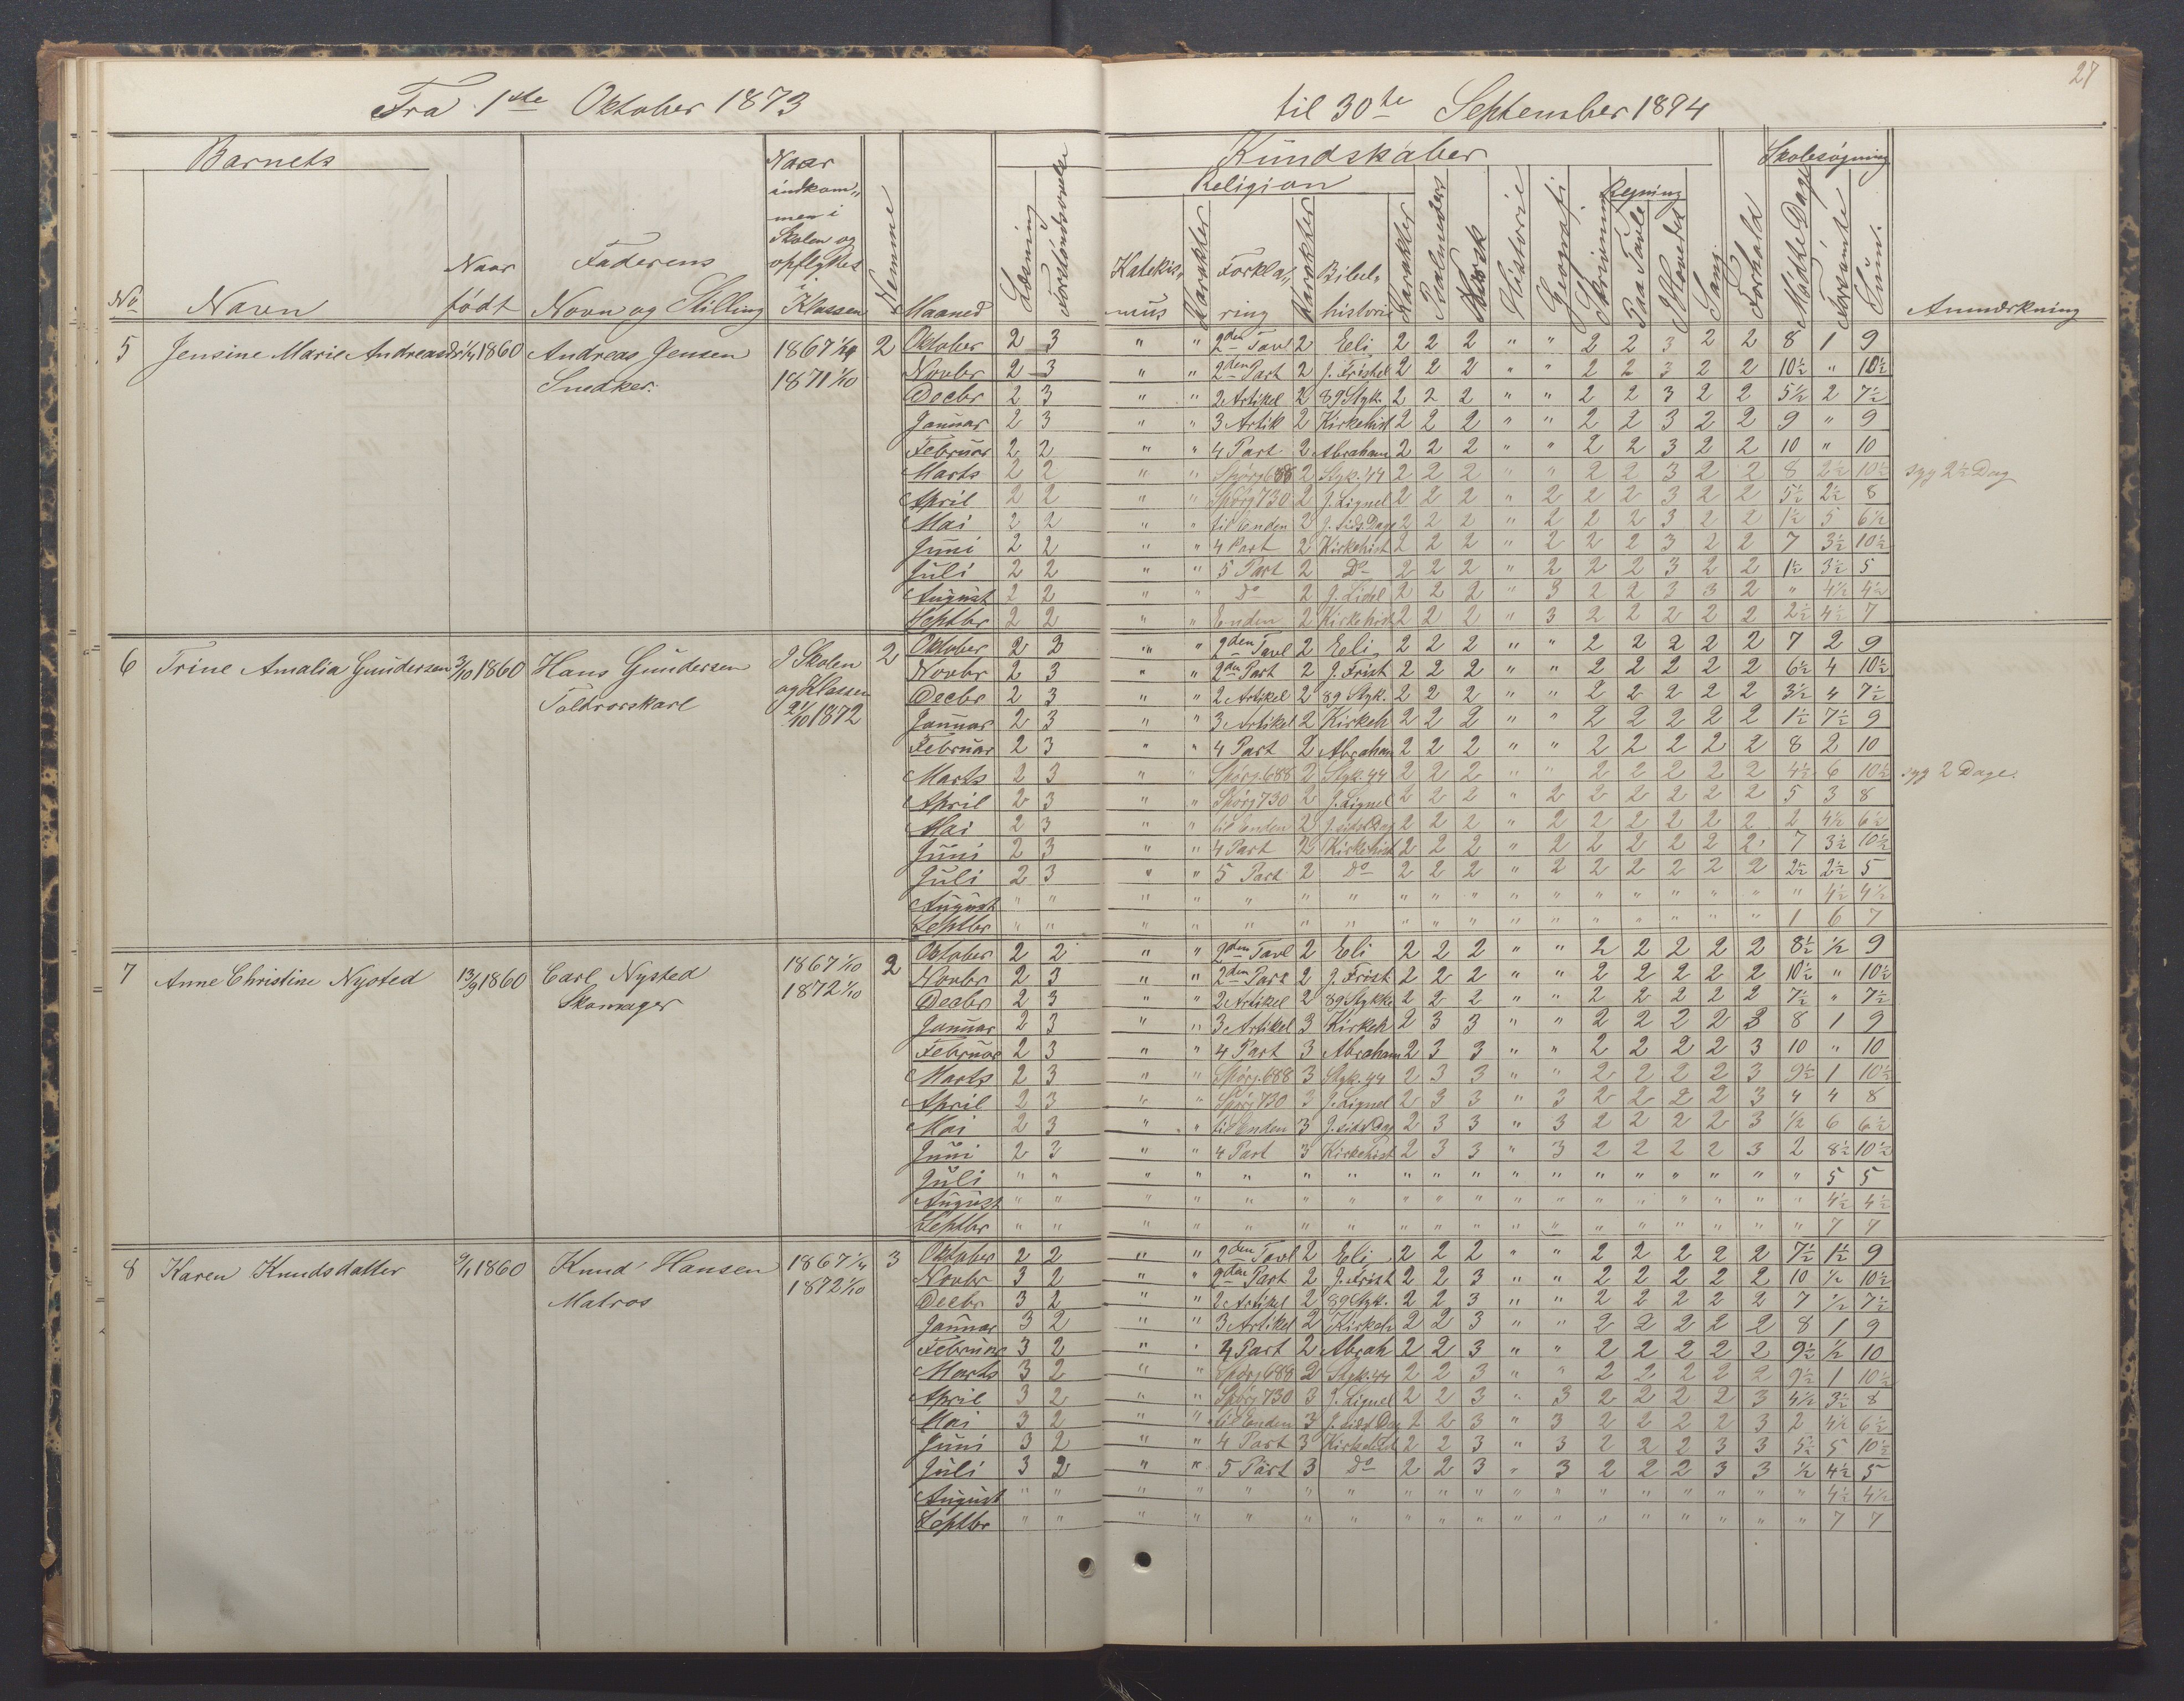 27
Fra 1ste Oktober 1873 til 30te September 1894
Barnets
No
Navn
Naar født
Faderens Navn og Stilling
Naar indkommen i Skolen og opflyttes i Klassen
Nemme
Maaned
Læsning
Kundskaber
Religion
Katekismus
Karakter
Forklaring
Karakter
Bibelhistorie
Karakter
Historie
Geografi
Skrivning
Regning
Paa Tavle
I Hovedet
Sang
Forhold
Skolesøgning
Mødte Dage
Forsømte
Sum.
Anmærkning
5 Jensine Marie Andreasdr 1860 Andreas Jensen 1867 2
Snedker. 1871 1/10
Oktober 2 3 " " 2den Tavl 2 Eli 2 2 2 " " 2 2 3 2 2 8 1 9
Novbr 2 3 " " 2den Part 2 J. Fristel 2 2 2 " " 2 2 3 2 2 10½ " 10½
Decbr 2 3 " " 2 Artikel 2 89 Styk. 2 2 2 " " 2 2 3 2 2 5½ 2 7½
Januar 2 3 " " 3 Artik 2 Kirkehist 2 2 2 " " 2 2 3 2 2 9 " 9
Februar 2 2 " " 4 Part 2 Abraham 2 2 2 " " 2 2 3 2 2 10 " 10
Marts 2 2 " " Spørg 688 2 Styk. 44 2 2 2 " " 2 2 3 2 2 8 2½ 10½ syg 2½ Dag
April 2 2 " " Spørg 730 2 J. Lignel 2 2 2 " 2 2 2 3 2 2 5½ 2½ 8
Mai 2 2 " " til Enden 2 J. sids Dage 2 2 2 " 2 2 2 3 2 2 1½ 5 6½
Juni 2 2 " " 4 Part 2 Kirkehist 2 2 2 " 2 2 2 3 2 2 7 3½ 10½
Juli 2 2 " " 5 Part 2 Do 2 2 2 " 2 2 2 3 2 2 1½ 3½ 5
August 2 2 " " Do 2 J. Lidel 2 2 2 " 3 2 2 3 3 2 " 4½ 4½
Septbr 2 2 " " Enden 2 Kirkehist 2 2 2 " 3 2 2 2 2 2 2½ 4½ 7
6 Trine Amalia Gundersen 3/10 1860 Hans Gundersen I Skolen 2
Toldrorskarl og Klassen
21/10 1872
Oktober 2 3 " " 2den Tavl 2 Eli 2 2 2 " " 2 2 2 2 2 7 2 9
Novbr 2 3 " " 2den Part 2 J. Frist 2 2 2 " " 2 2 2 2 2 6½ 4 10½
Decbr 2 3 " " 2 Artikel 2 89 Styk. 2 2 2 " " 2 2 2 2 2 3½ 4 7½
Januar 2 3 " " 3 Artikel 2 Kirkeh 2 2 2 " " 2 2 2 2 2 1½ 7½ 9
Februar 2 3 " " 4 Part 2 Abraham 2 2 2 " " 2 2 2 2 2 8 2 10
Marts 2 3 " " Spørg. 688 2 Styk. 44 2 2 2 " " 2 2 2 2 2 4½ 6 10½ syg 2 Dage.
April 2 3 " " Spørg 730 2 J. Lignel 2 2 2 " 2 2 2 2 2 2 5 3 8
Mai 2 3 " " til Enden 2 J. sids Dag 2 2 2 " 2 2 2 2 2 2 2 4½ 6½
Juni 2 3 " " 4 Part 2 Kirkehist 2 2 2 " 2 2 2 2 2 2 7 3½ 10½
Juli 2 3 " " 5 Part 2 Do 2 2 2 " 2 2 2 2 2 2 2½ 2½ 5
August " " " " " " " " " " " " " " " " " " 4½ 4½
Septbr " " " " " " " " " " " " " " " " " 1 6 7
7 Anne Christine Nysted 13/9 1860 Carl Nysted 1867 1/10 2
Skomager 1872 1/10
Oktober 2 2 " " 2den Tavl 2 Eli 2 2 2 " " 2 2 2 2 2 8½ ½ 9
Novbr 2 3 " " 2den Part 2 J. Frist 2 2 2 " " 2 2 2 2 2 10½ " 10½
Decbr 2 3 " " 2 Artikel 2 89 Stykke 2 2 2 " " 2 2 2 2 2 7½ " 7½
Januar 2 3 " " 3 Artikel 3 Kirkeh 2 3 3 " " 2 2 2 2 3 8 1 9
Februar 2 3 " " 4 Part 3 Abraham 2 3 3 " " 2 2 2 2 3 10 " 10
Marts 2 3 " " Spørg. 688 3 Styk. 44 2 3 3 " " 2 2 2 2 3 9½ 1 10½
April 2 3 " " Spørg 730 3 J. Lignel 2 3 3 " 3 2 2 2 2 3 4 4 8
Mai 2 3 " " til Enden 3 J. sids Dag 2 3 3 " 3 2 2 2 2 3 ½ 6 6½
Juni 2 3 " " 4 Part 3 Kirkehist 2 3 3 " 3 2 2 2 2 3 2 8½ 10½
Juli " " " " " " " " " " " " " " " " " " 5 5
August " " " " " " " " " " " " " " " " " " 4½ 4½
Septbr " " " " " " " " " " " " " " " " " " 7 7
8 Karen Knudsdatter 9/1 1860 Knud Hansen 1867 1/4 3
Matros 1872 1/10
Oktober 2 2 " " 2den Tavl 2 Eli 2 2 2 " " 2 2 2 2 2 7½ 1½ 9
Novbr 3 2 " " 2den Part 2 J. Frist 2 2 3 " " 2 2 2 2 2 10 ½ 10½
Decbr 3 2 " " 2 Artikel 2 89 Styk. 2 2 3 " " 2 2 2 2 2 7 ½ 7½
Januar 3 2 " " 3 Artikel 2 Kirkeh 2 2 3 " " 2 2 2 2 2 8 1 9
Februar 3 2 " " 4 Part 2 Abrah 2 2 3 " " 2 2 2 2 2 9½ ½ 10
Marts 3 2 " " Spørg. 689 2 Styk. 44 2 2 3 " " 2 2 2 2 2 9½ 1 10½
April 3 2 " " Spørg 730 3 J. Lignel 2 2 3 " 3 2 2 2 2 3 4½ 3½ 8
Mai 3 2 " " til Enden 3 J. sids Dag 2 2 3 " 3 2 2 2 2 3 2 4½ 6½
Juni 3 2 " " 4 Part 3 Kirkehist 2 2 3 " 3 2 2 2 3 3 5½ 5 10½
Juli 3 2 " " 5 Part 3 Do 2 2 3 " 3 2 2 2 3 3 ½ 4½ 5
August " " " " " " " " " " " " " " " " " " 4½ 4½
Septbr " " " " " " " " " " " " " " " " " " 7 7